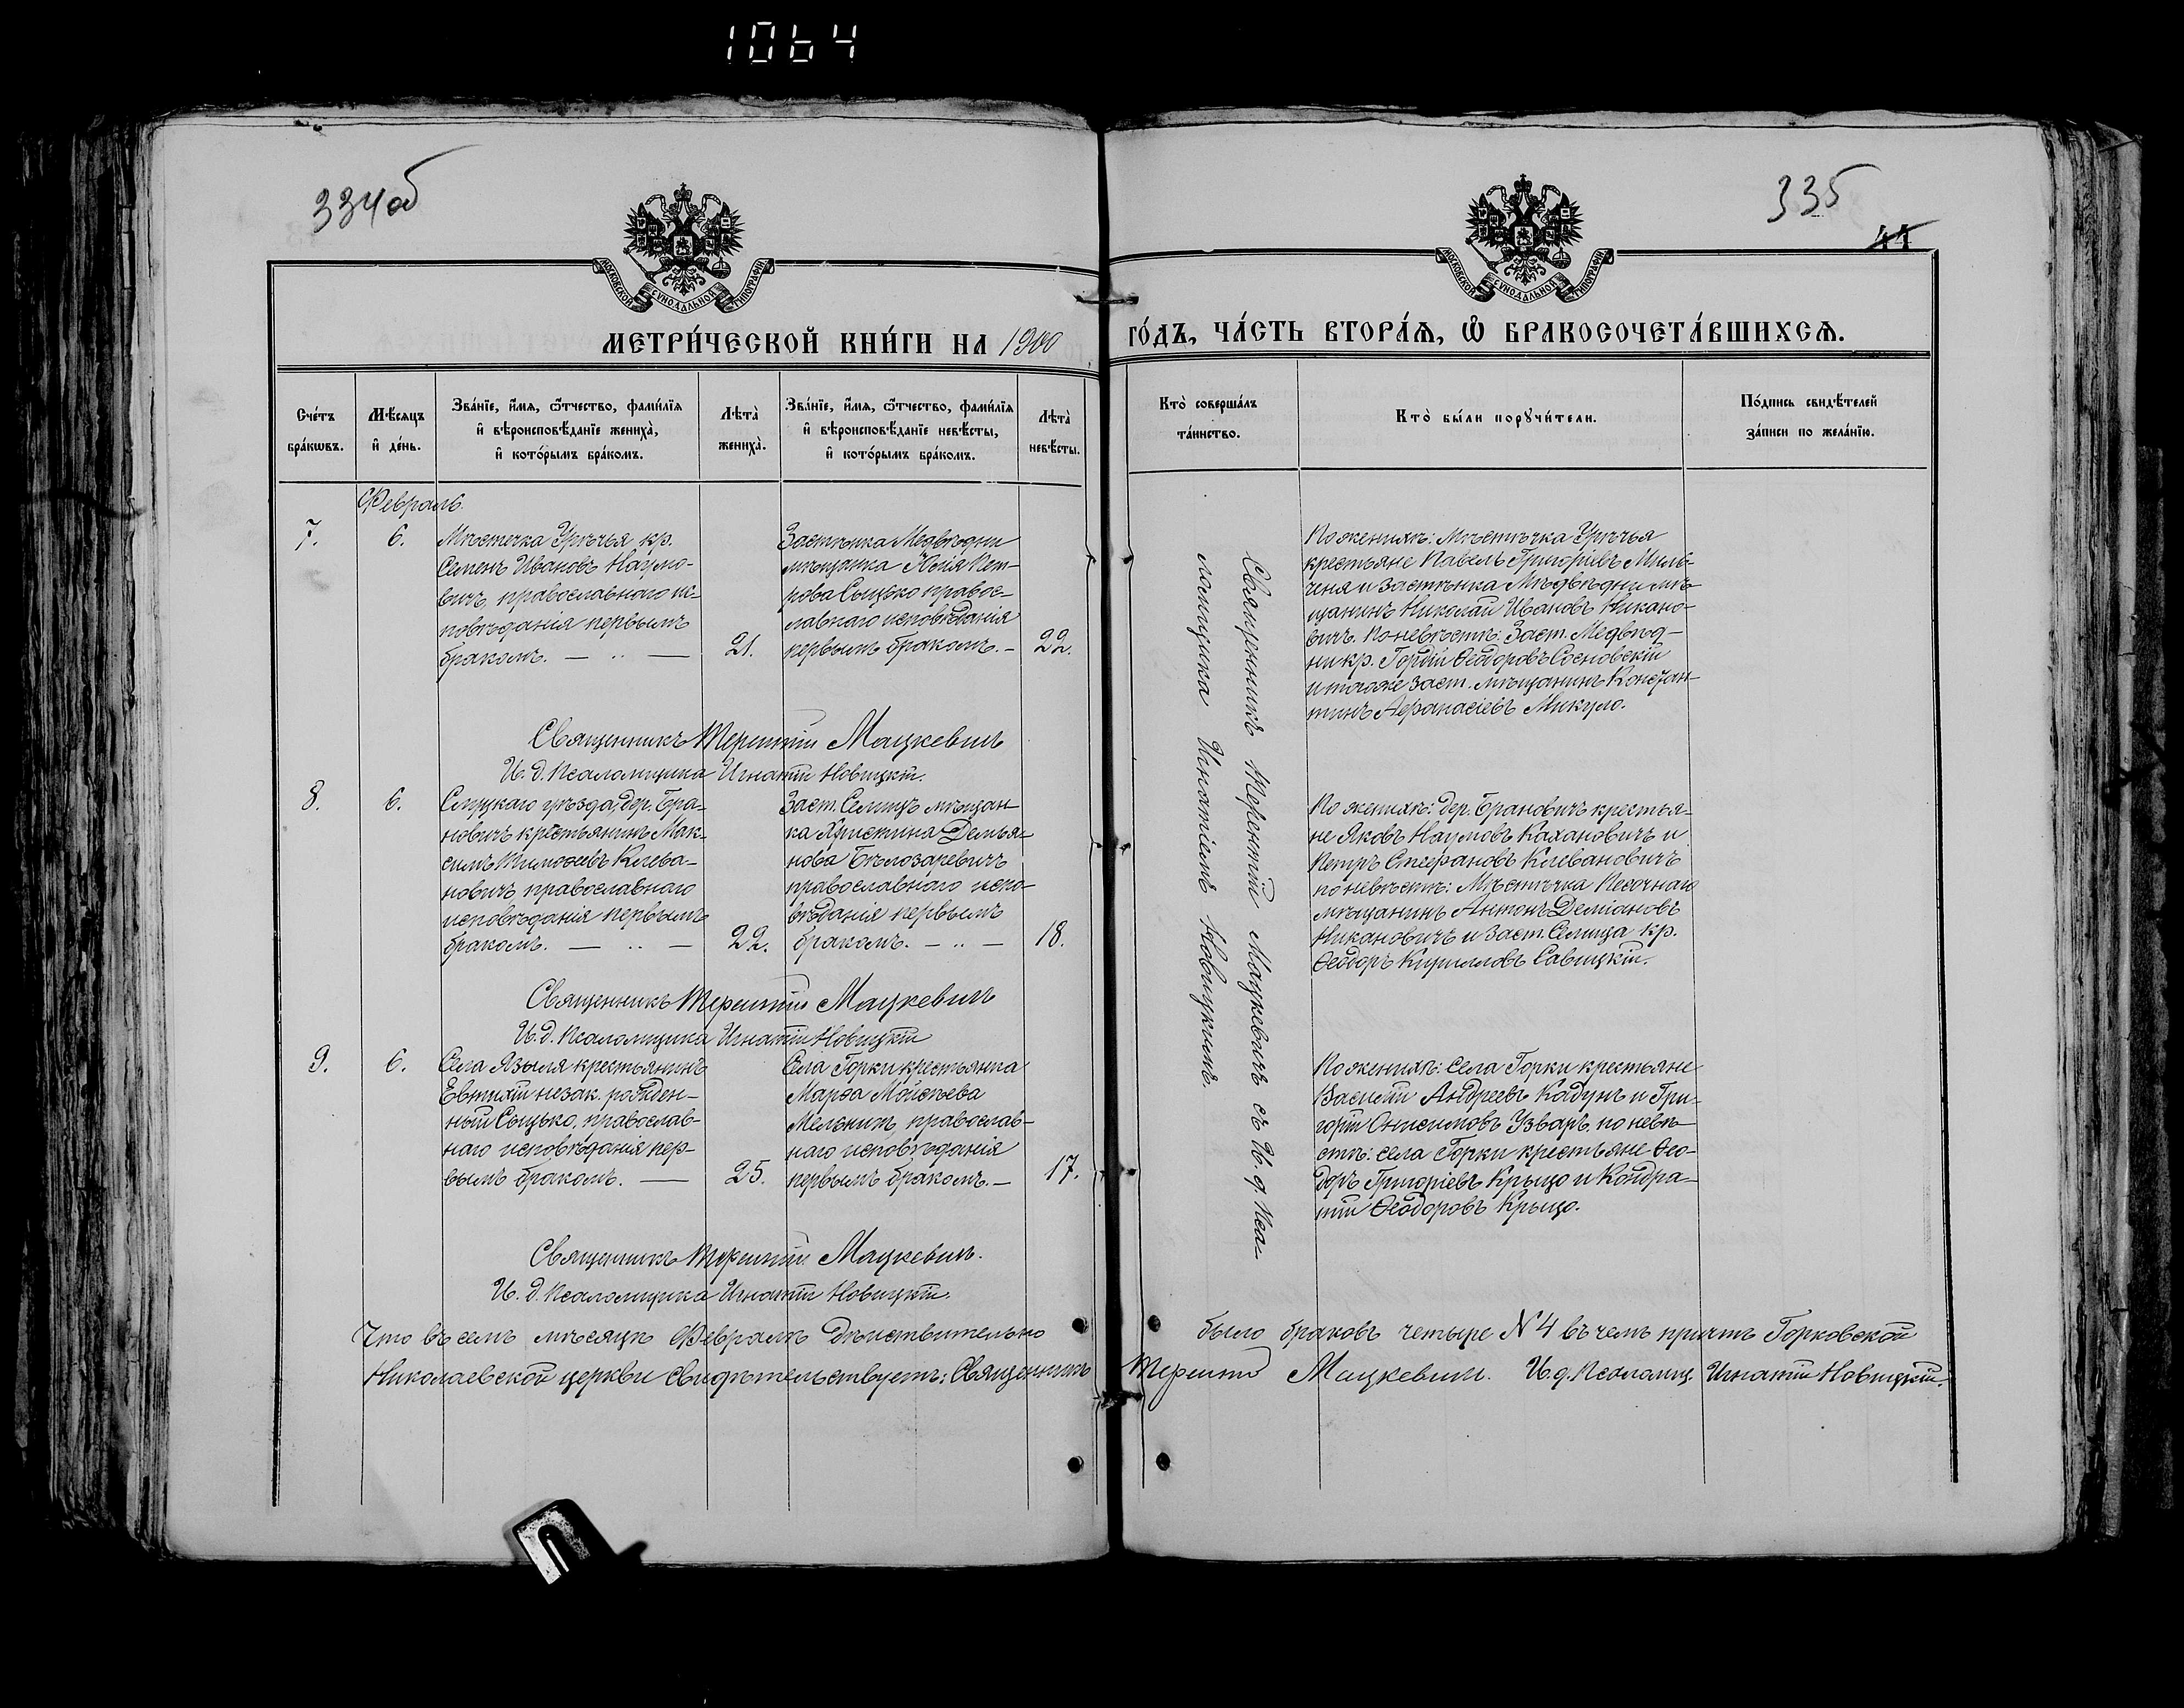 1064
334об
335
44
МОСКОВСКОЙ СѴНОДАЛЬНОЙ ТИПОГРАФІИ
МОСКОВСКОЙ СѴНОДАЛЬНОЙ ТИПОГРАФІИ
МЕТРИ́ЧЕСКОЙ КНИ́ГИ НА 1900
ГО́ДЪ, ЧА́СТЬ ВТОРА́Ѧ, Ѽ БРАКОСОЧЕТА́ВШИХСѦ.
Сче́тъ
бра́кѡвъ.
Мѣ́сяцъ
и҆ де́нь.
Зва́нїе, и҆́мѧ, ѻ҆́тчество, фами́лїѧ
и҆ вѣроисповѣ́данїе жениха̀,
и҆ кото́рымъ бра́комъ.
Лѣта̀
жениха̀.
Зва́нїе, и҆́мѧ, ѻ҆́тчество, фами́лїѧ
и҆ вѣроисповѣ́данїе невѣ́сты,
и҆ кото́рымъ бра́комъ.
Лѣта̀
невѣ́сты.
Кто̀ соверша́лъ
та́инство.
Кто̀ бы́ли порꙋчи́тели.
По́дпись свидѣ́телей
за́писи по жела́нїю.
Февраль.
7.
6.
Мѣстечка Урѣчья кр.
Семенъ Ивановъ Наумо-
вичъ, православнаго ис-
повѣданія первымъ
бракомъ. — .. —
21.
Застѣнка Медвѣдни
мѣщанка Юлія Пет-
рова Сыцько правос-
лавнаго исповѣданія
первымъ бракомъ. –
22.
По женихѣ: Мѣстѣчка Урѣчья
крестьяне Павелъ Григоріевъ Миль-
ченя и Застѣнка Мѣдвѣдни мѣ-
щанинъ Николай Ивановъ Никано-
вичъ. По невѣстѣ: Заст. Медвѣд-
ни кр. Гордій Ѳеодоровъ Сосновскій
и тогоже заст. мѣщанинъ Констан-
тинъ Афанасіевъ Микуло.
Священникъ Терентій Мацкевичъ
И. д. Псаломщика Игнатій Новицкій.
8.
6.
Слуцкаго уѣзда, дер. Бра-
новичъ крестьянинъ Мак-
симъ Тимоѳеевъ Клева-
новичъ православнаго
исповѣданія первымъ
бракомъ. — .. —
22.
Заст. Селищъ мѣщан-
ка Христина Демья-
нова Бѣлозаревичъ
православнаго испо-
вѣданія первымъ
бракомъ. — .. —
18.
По женихѣ: дер. Брановичъ крестья-
не Яковъ Наумовъ Кахановичъ и
Петръ Стефановъ Клевановичъ
по невѣстѣ: Мѣстѣчка Песочнаго
мѣщанинъ Антонъ Деміановъ
Никановичъ и Заст. Селища кр.
Ѳеодоръ Кирилловъ Савицкій.
Священникъ Терентій Мацкевичъ
И. д. Псаломщика Игнатій Новицкій
9.
6.
Села Языля крестьянинъ
Евтихій незак. рожден-
ный Сыцько, православ-
наго исповѣданія пер-
вымъ бракомъ. —
25.
Села Горки крестьянка
Марѳа Моисѣева
Мельникъ, православ-
наго исповѣданія
первымъ бракомъ. –
17.
По женихѣ: Села Горки крестьяне
Василій Андреевъ Кадунъ и Гри-
горій Онисимовъ Узваръ, по невѣ-
стѣ: села Горки крестьяне Ѳео-
доръ Григоріевъ Крыцо и Кондра-
тій Ѳеодоровъ Крыцо.
Священникъ Терентій Мацкевичъ съ И. д. Пса-
ломщика Игнатіемъ Новицкимъ.
Священникъ Терентій Мацкевичъ.
И. д. Псаломщика Игнатій Новицкій.
Что въ семъ мѣсяцѣ Февралѣ дѣйствительно было браковъ четыре N 4 въ чемъ причтъ Горковской
Николаевской церкви свидѣтельствуетъ: Священникъ Терентій Мацкевичъ. И. д. Псаломщ. Игнатій Новицкій.